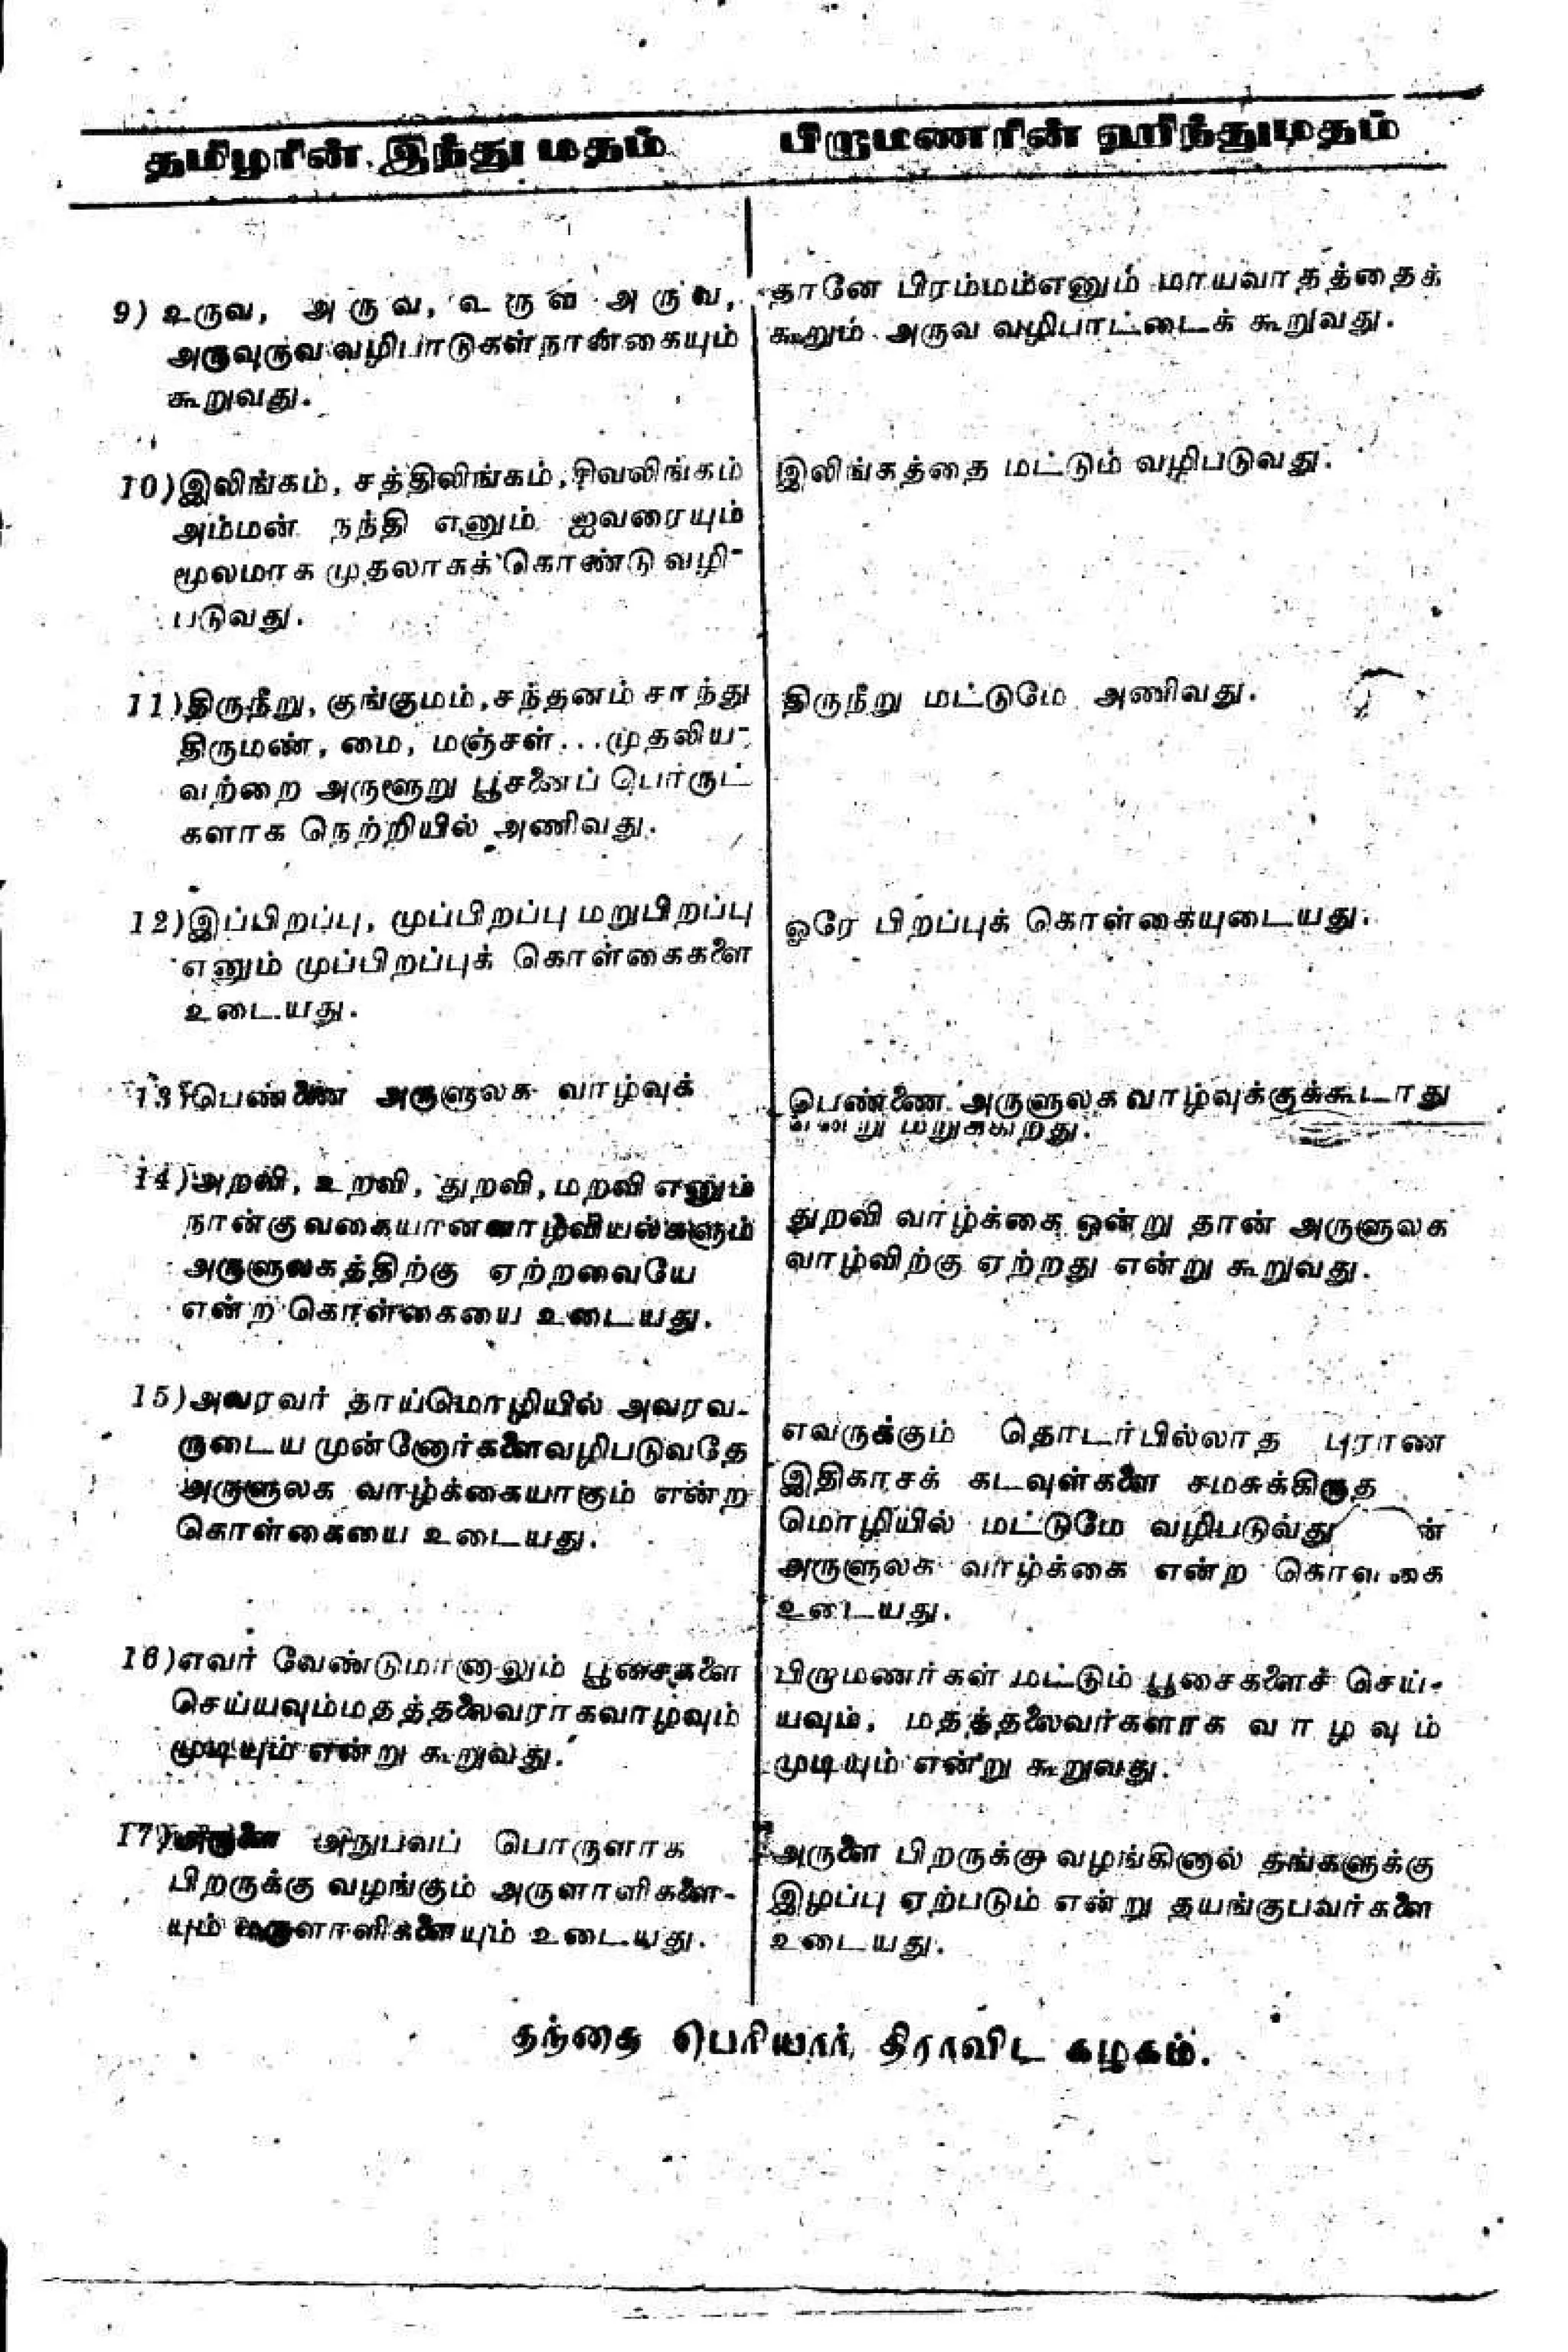 தமிழரின் இந்து மதம்
பிறாமணரின் ஹிந்துமதம்
9) உருவ, அருவ, உருவ அருவ,
அருவுருவ வழிபாடுகள் நான்கையும்
கூறுவது.
தானே பிரம்மம்எனும் மாயவாதத்தைக்
கூறும் அருவ வழிபாட்டைக் கூறுவது.
10) இலிங்கம், சத்திலிங்கம், சிவலிங்கம்
அம்மன் நந்தி எனும் ஐவரையும்
மூலமாக முதலாகக் கொண்டு வழி-
படுவது.
இலிங்கத்தை மட்டும் வழிபடுவது.
11) திருநீறு, குங்குமம், சந்தனம் சாந்து
திருமண், மை, மஞ்சள்... முதலிய-
வற்றை அருளூறு பூசனைப் பொருட்
களாக நெற்றியில் அணிவது.
திருநீறு மட்டுமே அணிவது.
12) இப்பிறப்பு, முப்பிறப்பு மறுபிறப்பு
எனும் முப்பிறப்புக் கொள்கைகளை
உடையது.
ஒரே பிறப்புக் கொள்கையுடையது.
13) பெண்ணை அருளுலக வாழ்வுக்
பெண்ணை அருளுலக வாழ்வுக்குக்கூடாது
மறுக்கிறது.
14) அறவி, உறவி, துறவி, மறவி எனும்
நான்கு வகையான வாழ்வியல்களும்
அருளுலகத்திற்கு ஏற்றவையே
என்ற கொள்கையை உடையது.
துறவி வாழ்க்கை ஒன்று தான் அருளுலக
வாழ்விற்கு ஏற்றது என்று கூறுவது.
15) அவரவர் தாய்மொழியில் அவரவ-
ருடைய முன்னோர்களைவழிபடுவதே
அருளுலக வாழ்க்கையாகும் என்ற
கொள்கையை உடையது.
எவருக்கும் தொடர்பில்லாத புராண
இதிகாசக் கடவுள்களை சமசுக்கிருத
மொழியில் மட்டுமே வழிபடுவது
அருளுலக வாழ்க்கை என்ற
உடையது.
16) எவர் வேண்டுமானாலும் பூசைகளை
செய்யவும்மதத்தலைவராகவாழவும்
முடியும் என்று கூறுவது.
பிறாமணர்கள் மட்டும் பூசைகளைச் செய்-
யவும், மதத்தலைவர்களாக வாழவும்
முடியும் என்று கூறுவது.
17) அருளை அநுபவப் பொருளாக
பிறருக்கு வழங்கும் அருளாளிகளை-
யும் மருளாளிகளையும் உடையது.
அருளை பிறருக்கு வழங்கினால் தங்களுக்கு
இழப்பு ஏற்படும் என்று தயங்குபவர்களை
உடையது.
தந்தை பெரியார், திராவிட கழகம்.